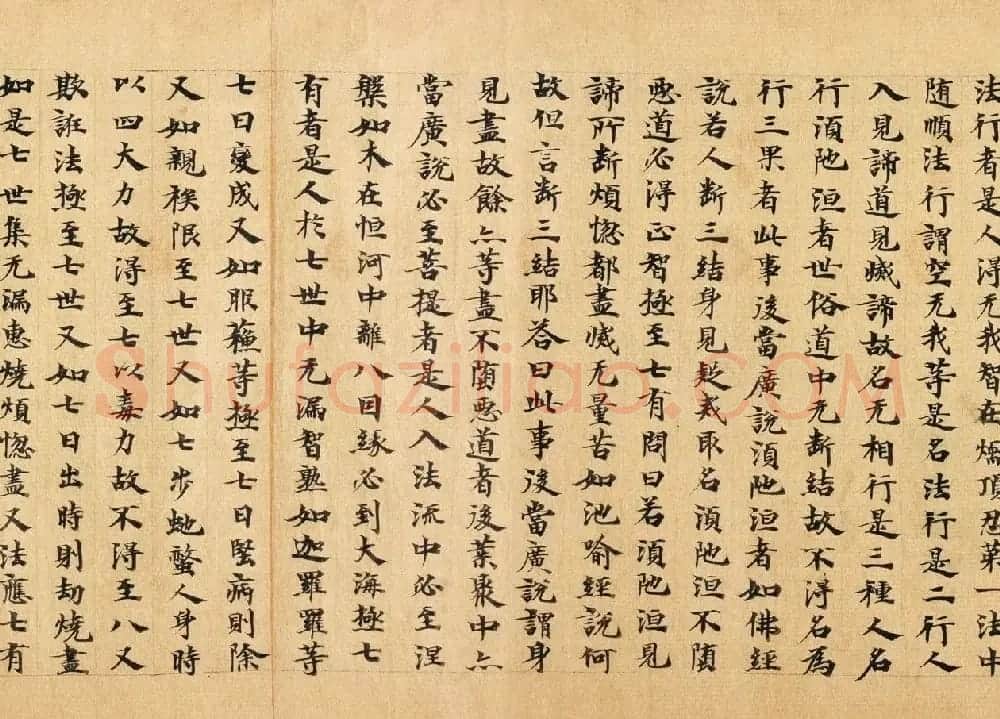 法行者是人淂无我智在煗頂忍苐一法中
随順法行謂空无我等是名法行是二行人
入見諦道見滅諦故名无相行是三種人名
行湏陁洹者世俗道中无断結故不淂名為
行三果者此事後當廣說湏陁洹者如佛經
說若人断三結身見疑戒取名湏陁洹不墮
悪道必得正智極至七有問曰若湏陁洹見
諦所断煩惚都盡滅无量苦如池喻經說何
故但言断三結耶荅曰此事後當廣說謂身
見盡故餘亦等盡不墮悪道者後業聚中亦
當廣說必至菩提者是人入法流中必至涅
槃如木在恒河中離八因緣必到大海極七
有者是人於七世中无漏智熟如迦羅羅等
七日變成又如服蘓等極至七日堅病則除
又如親族限至七世又如七步虵螫人身時
以四大力故得至七以毒力故不得至八又
欺誑法極至七世又如七日出時則劫燒盡
如是七世集无漏惠燒煩惚盡又法應七有
Shufaziliao.COM